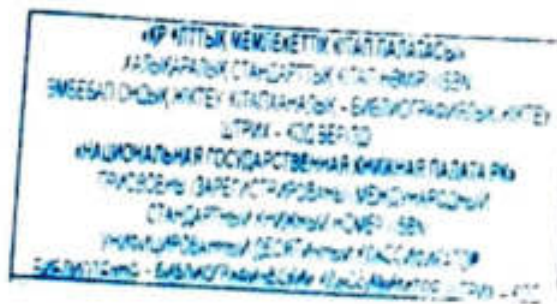 «ҚР ҰЛТТЫҚ МЕМЛЕКЕТТІК КІТАП ПАЛАТАСЫ»
ХАЛЫҚАРАЛЫҚ СТАНДАРТТЫҚ КІТАП НӨМІРІ - ISBN
ӘМБЕБАП ОНДЫҚ ЖІКТЕУ КІТАПХАНАЛЫҚ - БИБЛИОГРАФИЯЛЫҚ ЖІКТЕУ
ШТРИХ - КОД БЕРІЛДІ
«НАЦИОНАЛЬНАЯ ГОСУДАРСТВЕННАЯ КНИЖНАЯ ПАЛАТА РК»
ПРИСВОЕНЫ (ЗАРЕГИСТРИРОВАНЫ) МЕЖДУНАРОДНЫЙ
СТАНДАРТНЫЙ КНИЖНЫЙ НОМЕР - ISBN
УНИФИЦИРОВАННЫЙ ДЕСЯТИЧНЫЙ КЛАССИФИКАТОР
БИБЛИОТЕЧНО - БИБЛИОГРАФИЧЕСКИЙ КЛАССИФИКАТОР ШТРИХ - КОД